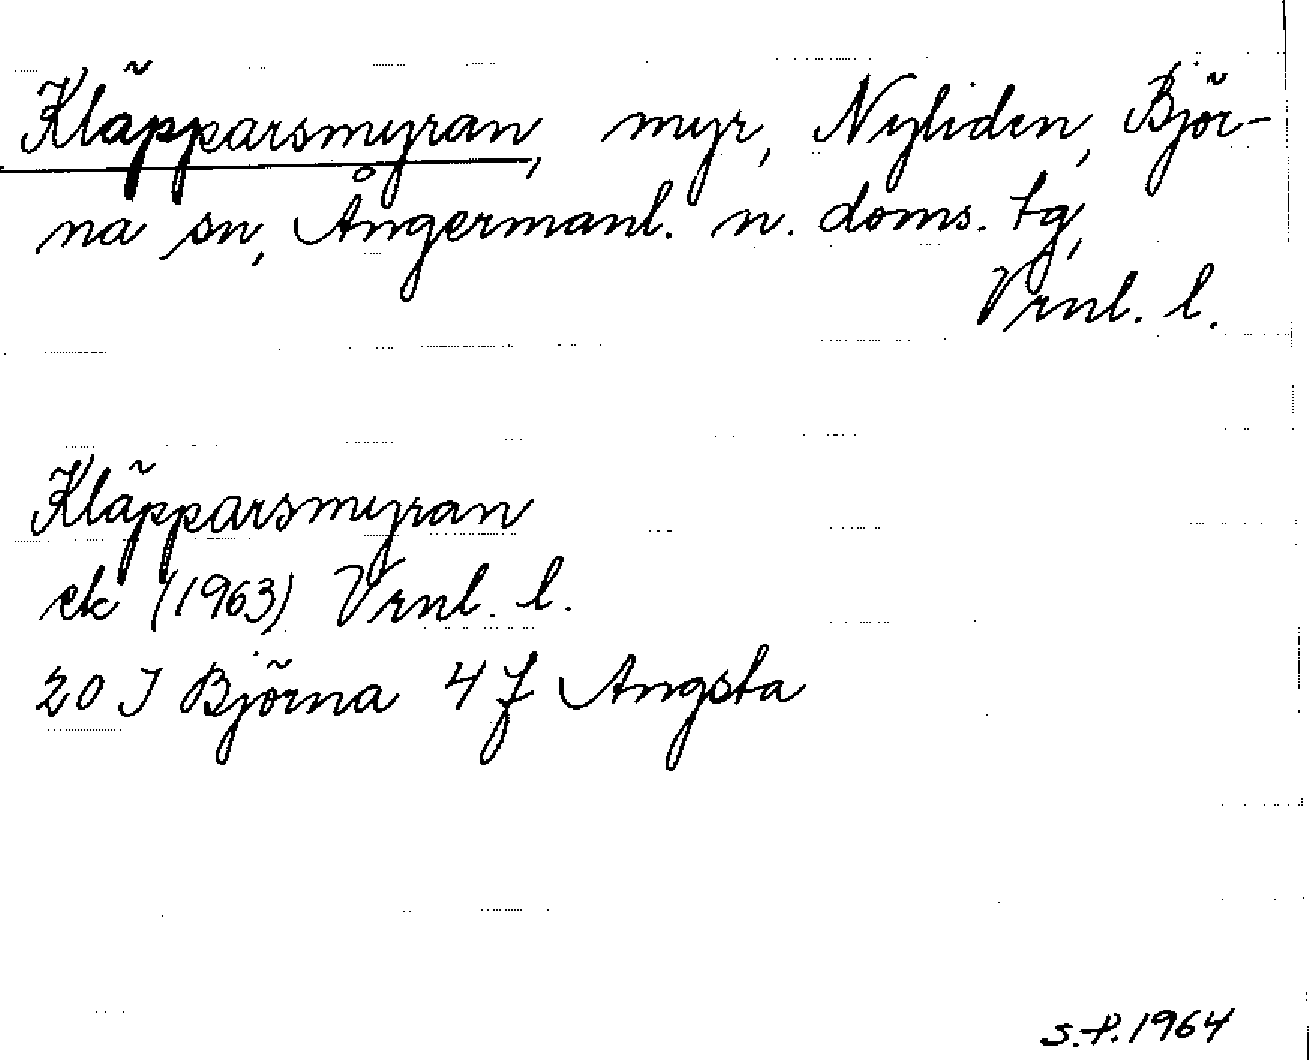 Kläpparsmyran, myr, Nyliden, Björ-
na sn, Ångermanl. n. doms. tg,
Vrnl. l.
Kläpparsmyran
ek (1963) Vrnl. l.
20 J Björna 4 f Angsta
S.P. 1964